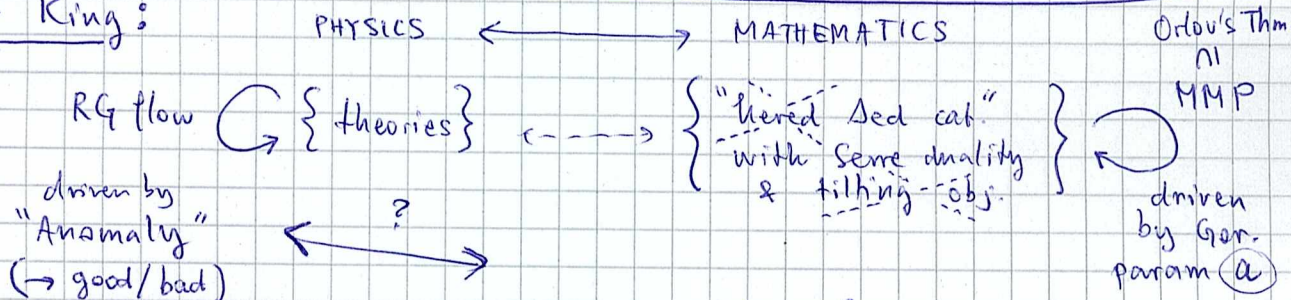 King:
PHYSICS ⟷ MATHEMATICS
Orlov's Thm
∩|
MMP
RG flow { theories } ⤎--⤏ { "hered Δed cat." with Serre duality & tilting obj. }
driven by
"Anomaly"
(→ good/bad)
?
driven
by Gor.
param a